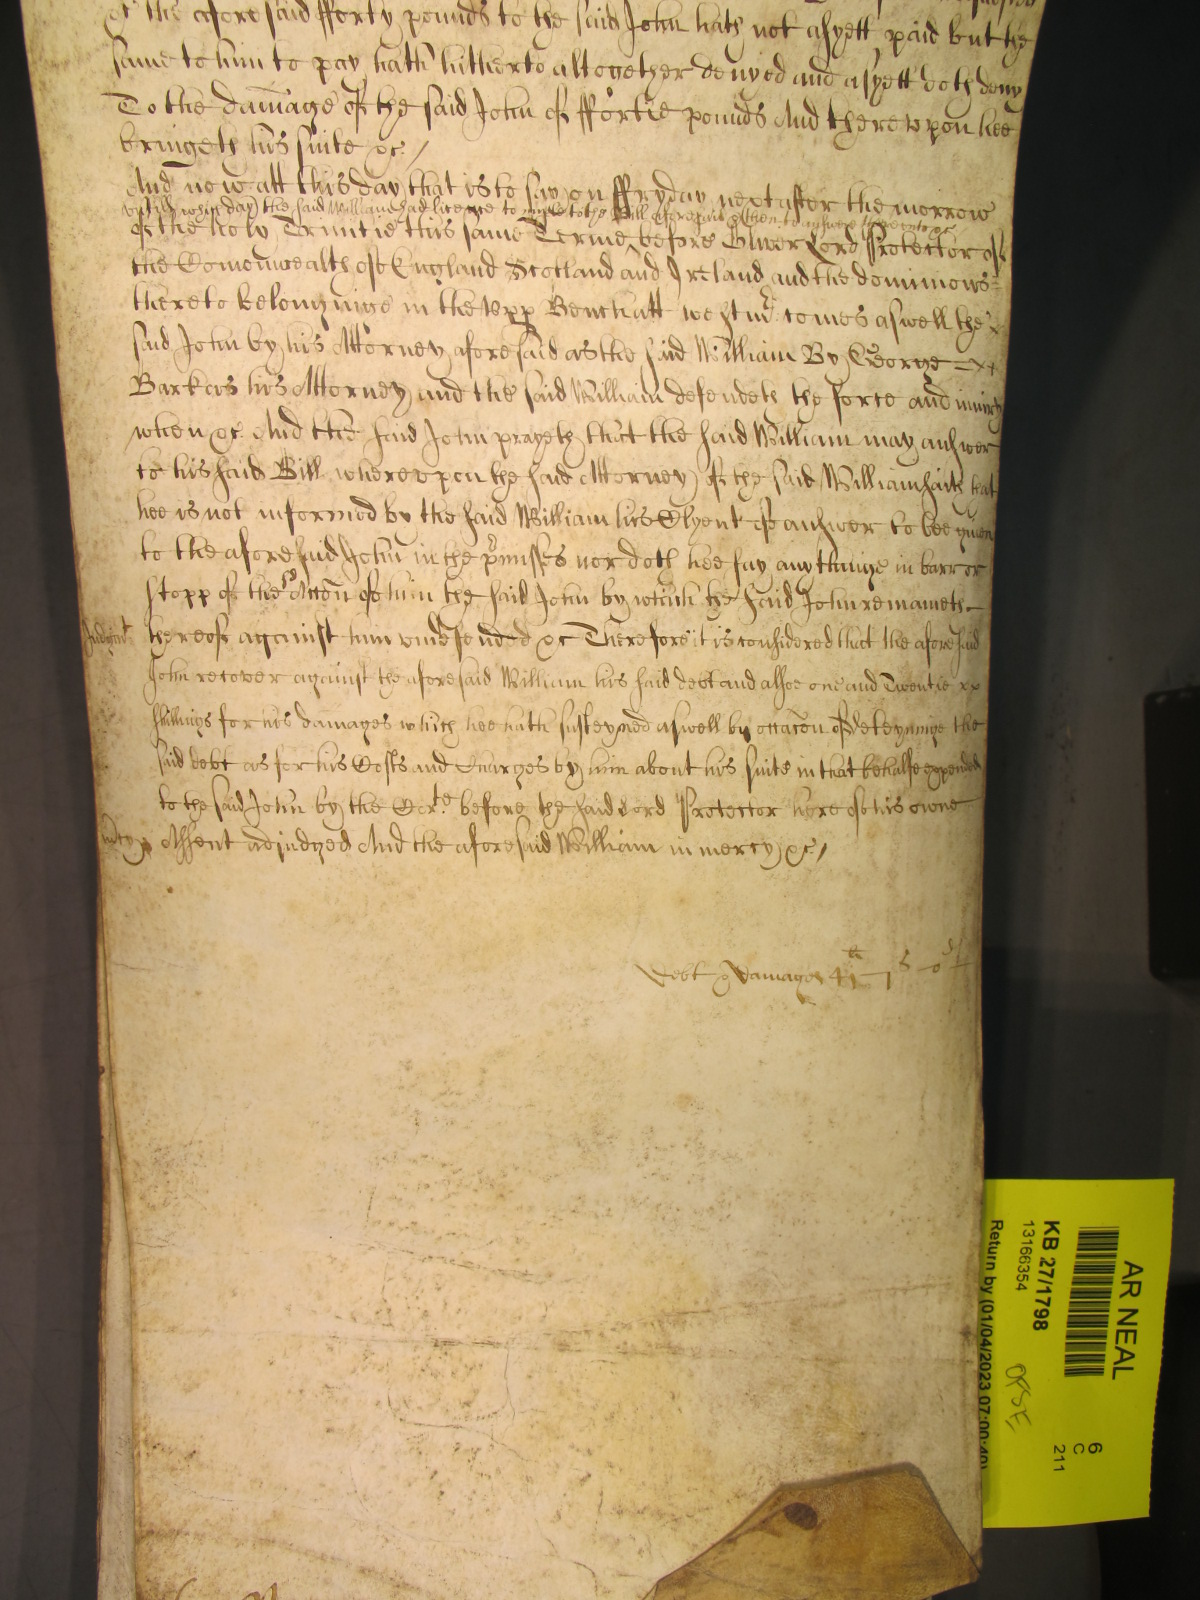 of the aforesaid fforty pounds to the said John hath not asyett paid but the
same to him to pay hath hitherto altogether denyed and asyett doth deny
To the damage of the said John of ffortie pounds And thereupon hee
bringeth his suite &c /
And now att this day that is to say on ffryday next after the morrow
untill which day the said William had licence to emple to the Bill aforesaid & then to answere thereunto &c
of the holy Trinitie this same Terme before Oliver Lord Protector of
the Comonwealth of England Scotland and Ireland and the dominions
thereto belonginge in the upp Bench att westmr comes aswell the
said John by his Attorney aforesaid as the said William By George
Barkers his Attorney and the said William defendeth the force and iniury
when &c And the said John prayeth that the said William may answer
to his said Bill whereupon the said Attorney of the said William saith that
hee is not informed by the said William his Clyent of answer to bee given
to the aforesaid John in the p'misses nor doth hee say any thinge in barr or
stopp of the sd Accon of him the said John by which the said John remaineth
Judgmt thereof against him undefended &c Therefore it is considered that the aforesaid
John recover against the aforesaid William his said debt and alsoe one and Twentie
shillings for his damages which hee hath susteyned aswell by occacon of deteyninge the
said debt as for his Costs and Charges by him about his suite in that behalfe expended
to the said John by the Cort before the said Lord Protector here of his owne
mcy Assent adjudged And the aforesaid William in mercy &c /
Debt & Damages 41 li 1 s 0 d
AR NEAL
KB 27/1798
13166354
Return by (01/04/2023 07:00:40)
6
C
211